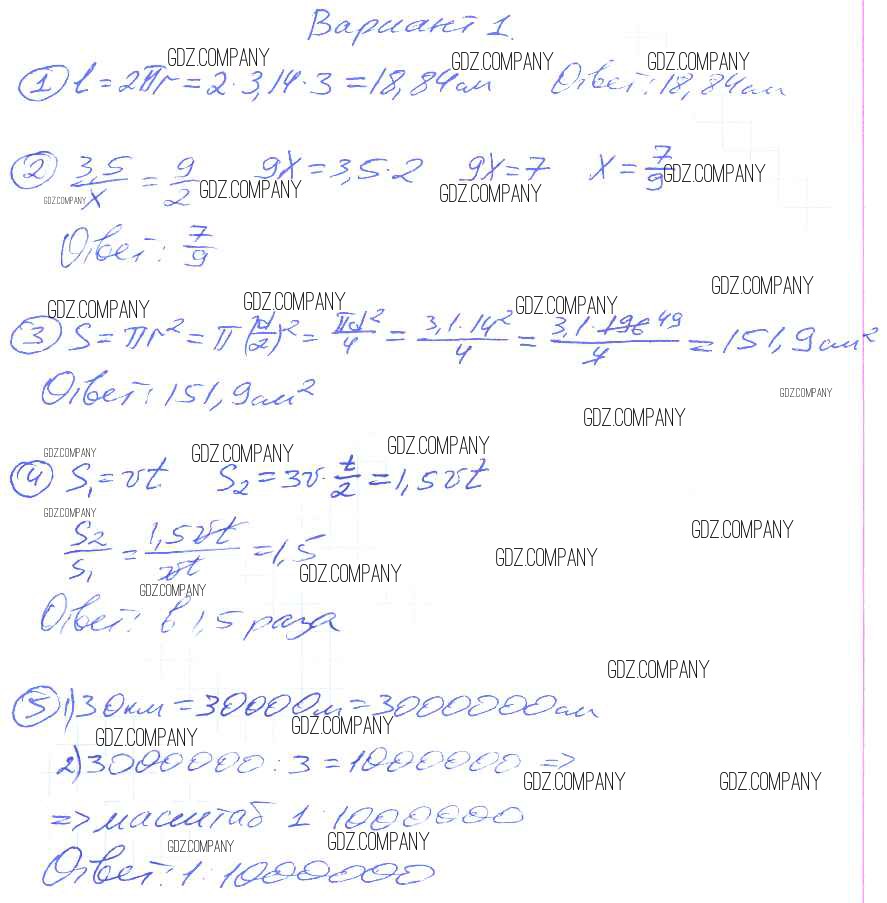 Вариант 1.
GDZ.COMPANY GDZ.COMPANY GDZ.COMPANY
① l = 2πr = 2 · 3,14 · 3 = 18,84 см Ответ: 18,84 см
② 3,5/x = 9/2 9x = 3,5 · 2 9x = 7 x = 7/9
GDZ.COMPANY GDZ.COMPANY GDZ.COMPANY GDZ.COMPANY
Ответ: 7/9
GDZ.COMPANY GDZ.COMPANY GDZ.COMPANY GDZ.COMPANY
③ S = πr² = π(d/2)² = πd²/4 = 3,1 · 14²/4 = 3,1 · 196 49/4 = 151,9 см²
Ответ: 151,9 см²
GDZ.COMPANY
GDZ.COMPANY
GDZ.COMPANY GDZ.COMPANY GDZ.COMPANY
④ S₁ = vt S₂ = 3v · t/2 = 1,5vt
GDZ.COMPANY
S₂/S₁ = 1,5vt/vt = 1,5
GDZ.COMPANY GDZ.COMPANY GDZ.COMPANY
GDZ.COMPANY
Ответ: в 1,5 раза
GDZ.COMPANY
⑤ 1) 30 км = 30000 м = 3000000 см
GDZ.COMPANY GDZ.COMPANY
2) 3000000 : 3 = 1000000 =>
GDZ.COMPANY GDZ.COMPANY
=> масштаб 1 : 1000000
GDZ.COMPANY GDZ.COMPANY
Ответ: 1 : 1000000